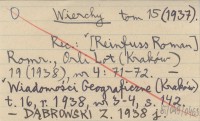 O Wierchy tom 15 (1937).
Rec.: [Reinfuss Roman]
Romr., Orli Lot (Kraków)
19 (1938), nr 4: 71-72. –
"Wiadomości Geograficzne (Kraków)
t. 16, r. 1938, nr 3-4, s. 142.
– DĄBROWSKI Z. 1938